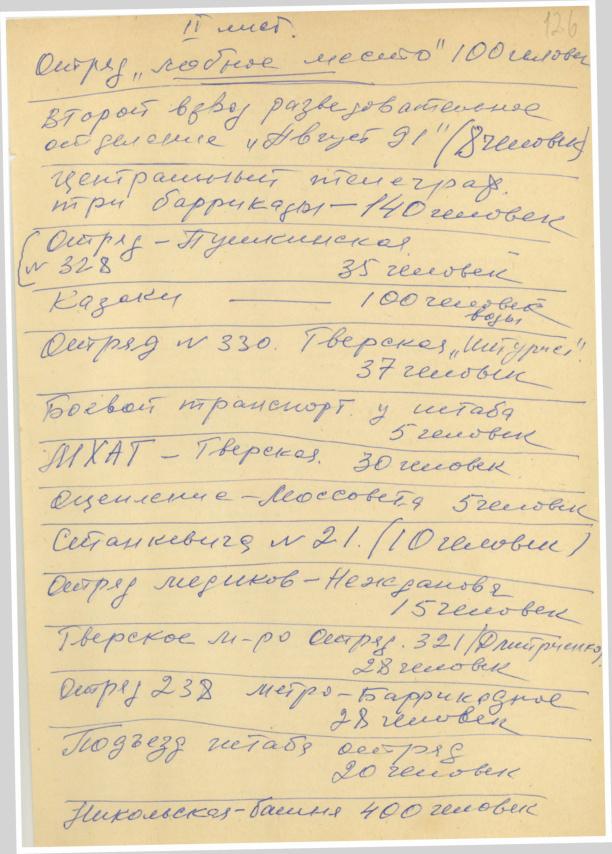 126
II лист.
Отряд „лобное место" 100 человек
Второй взвод разведовательное
отделение „Август 91" (8 человек)
Центральный телеграф.
три баррикады – 140 человек
Отряд – Пушкинская
№ 328 35 человек
Казаки — 100 человек
воды
Отряд № 330. Тверская „Интурист".
37 человек
Боевой транспорт. у штаба
5 человек
МХАТ – Тверская. 30 человек
Оцепление – Моссовета 5 человек
Станкевича № 21. (10 человек)
Отряд медиков – Нежданова
15 человек
Тверское м-ро Отряд. 321 (Дмитриченко)
28 человек
Отряд 238 метро – Баррикадное
28 человек
Подъезд штаба отряд
20 человек
Никольская – башня 400 человек